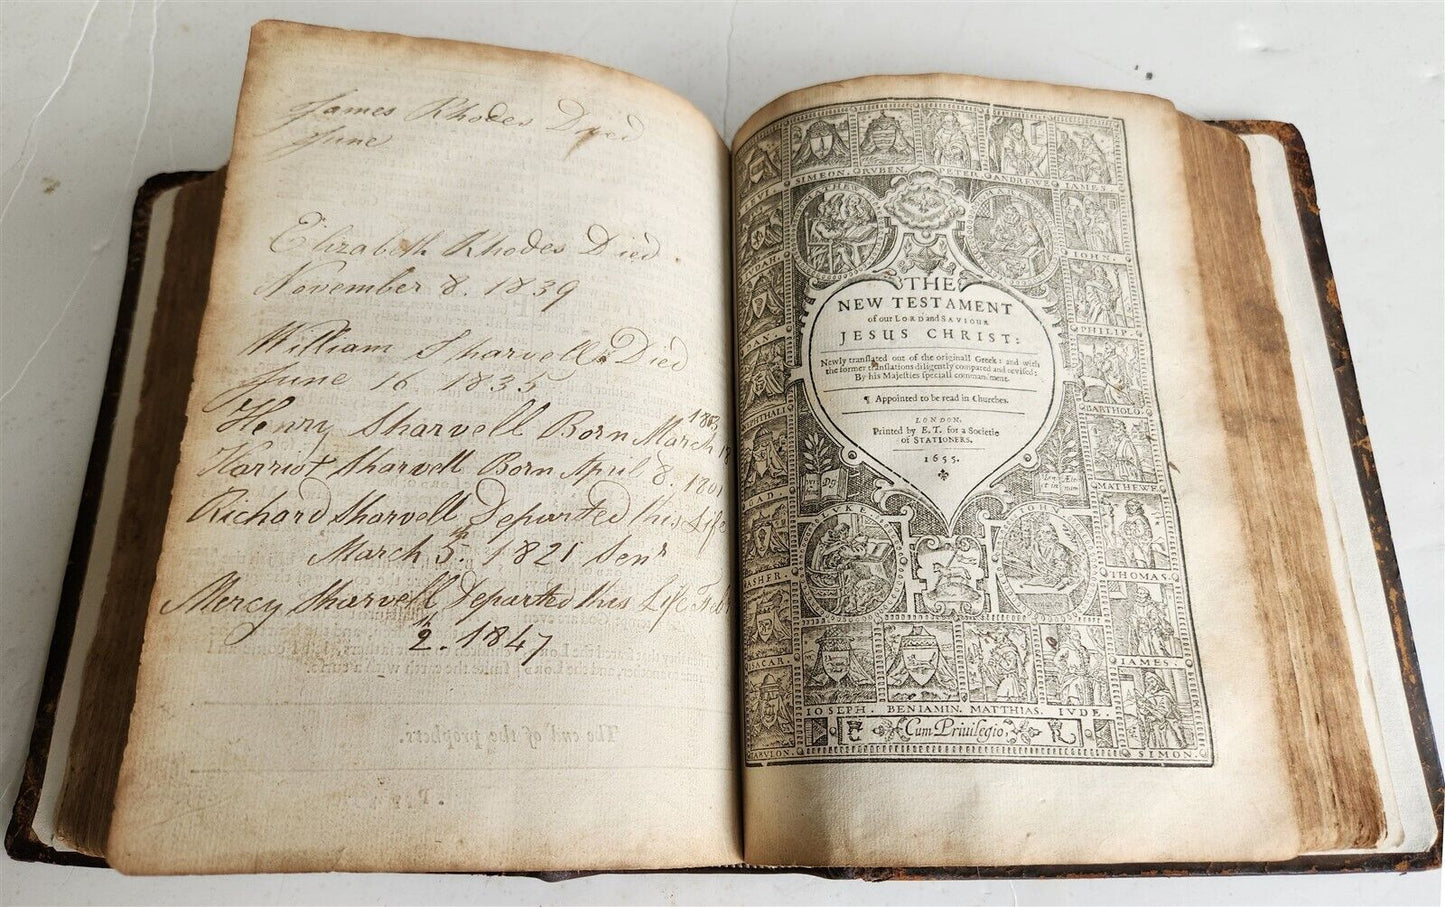 James Rhodes Died
June
Elizabeth Rhodes Died
November 8. 1839
William Sharvell Died
June 16 1835
1803
Henry Sharvell Born March
Harriot Sharvell Born April 8. 1801
Richard Sharvell Departed this Life
March 5th. 1821 Senr
Mercy Sharvell Departed this Life Febr
2th. 1847
The end of the prophets.
SIMEON. RUBEN. PETER. ANDREWE. IAMES.
LEVI.
IOHN.
IUDAH.
PHILIP.
DAN.
BARTHOLO.
MATHEWE.
GAD.
THOMAS.
ASHER.
IAMES.
SIMON.
LUKE
IOHN
THE
NEW TESTAMENT
of our LORD and SAVIOUR
JESUS CHRIST:
Newly translated out of the originall Greek: and with
the former translations diligently compared and revised:
By his Majesties speciall commandment.
¶ Appointed to be read in Churches.
LONDON,
Printed by E. T. for a Societie
of STATIONERS.
1655.
IOSEPH. BENIAMIN. MATTHIAS. IVDE.
Cum Privilegio